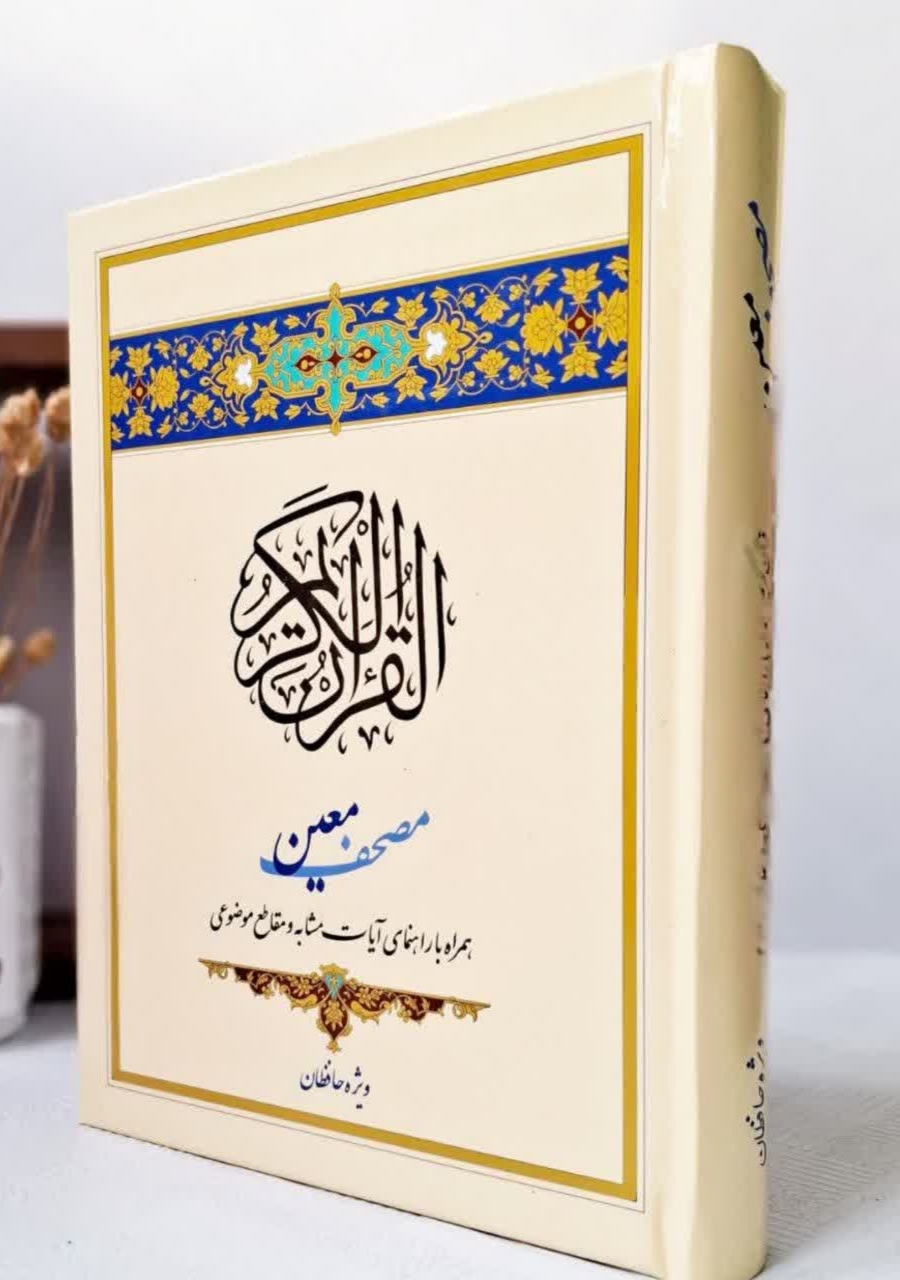 القرآن الكريم
مصحف معین
همراه با راهنمای آیات مشابه و مقاطع موضوعی
ویژه حافظان
مصحف معین
ویژه حافظان